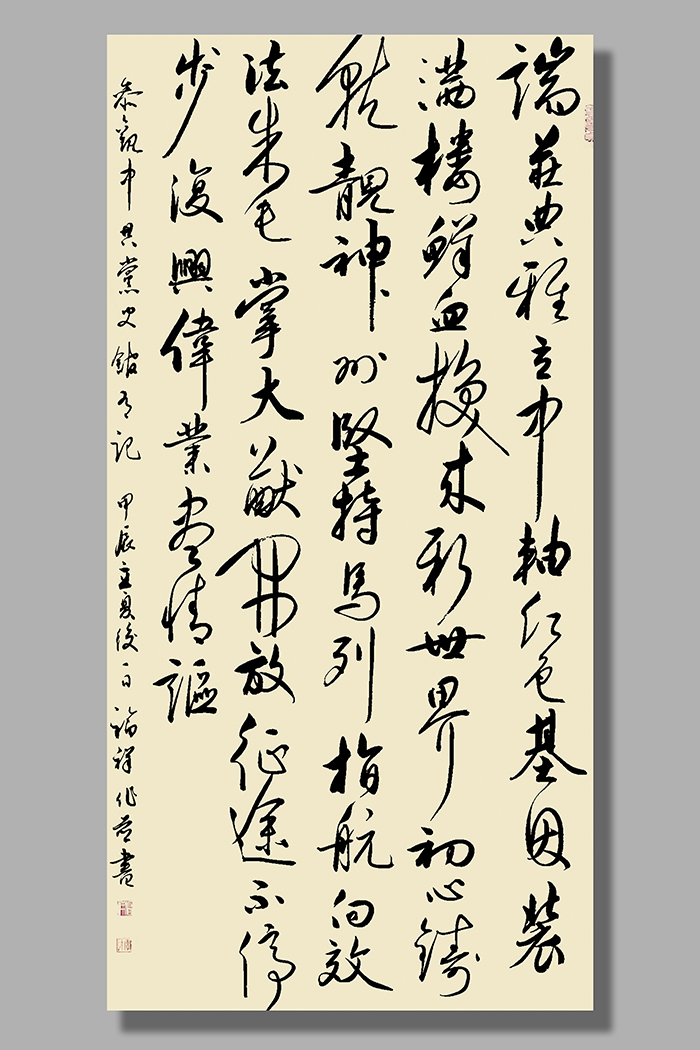 端莊典雅立中軸红色基因裝
满楼鲜血换来新世界初心鑄
就靚神州堅持馬列指航向效
法朱毛掌大猷開放征途不停
步復興偉業尽情謳
恭觀中共黨史館有記 甲辰立夏後一日 福祥作並書